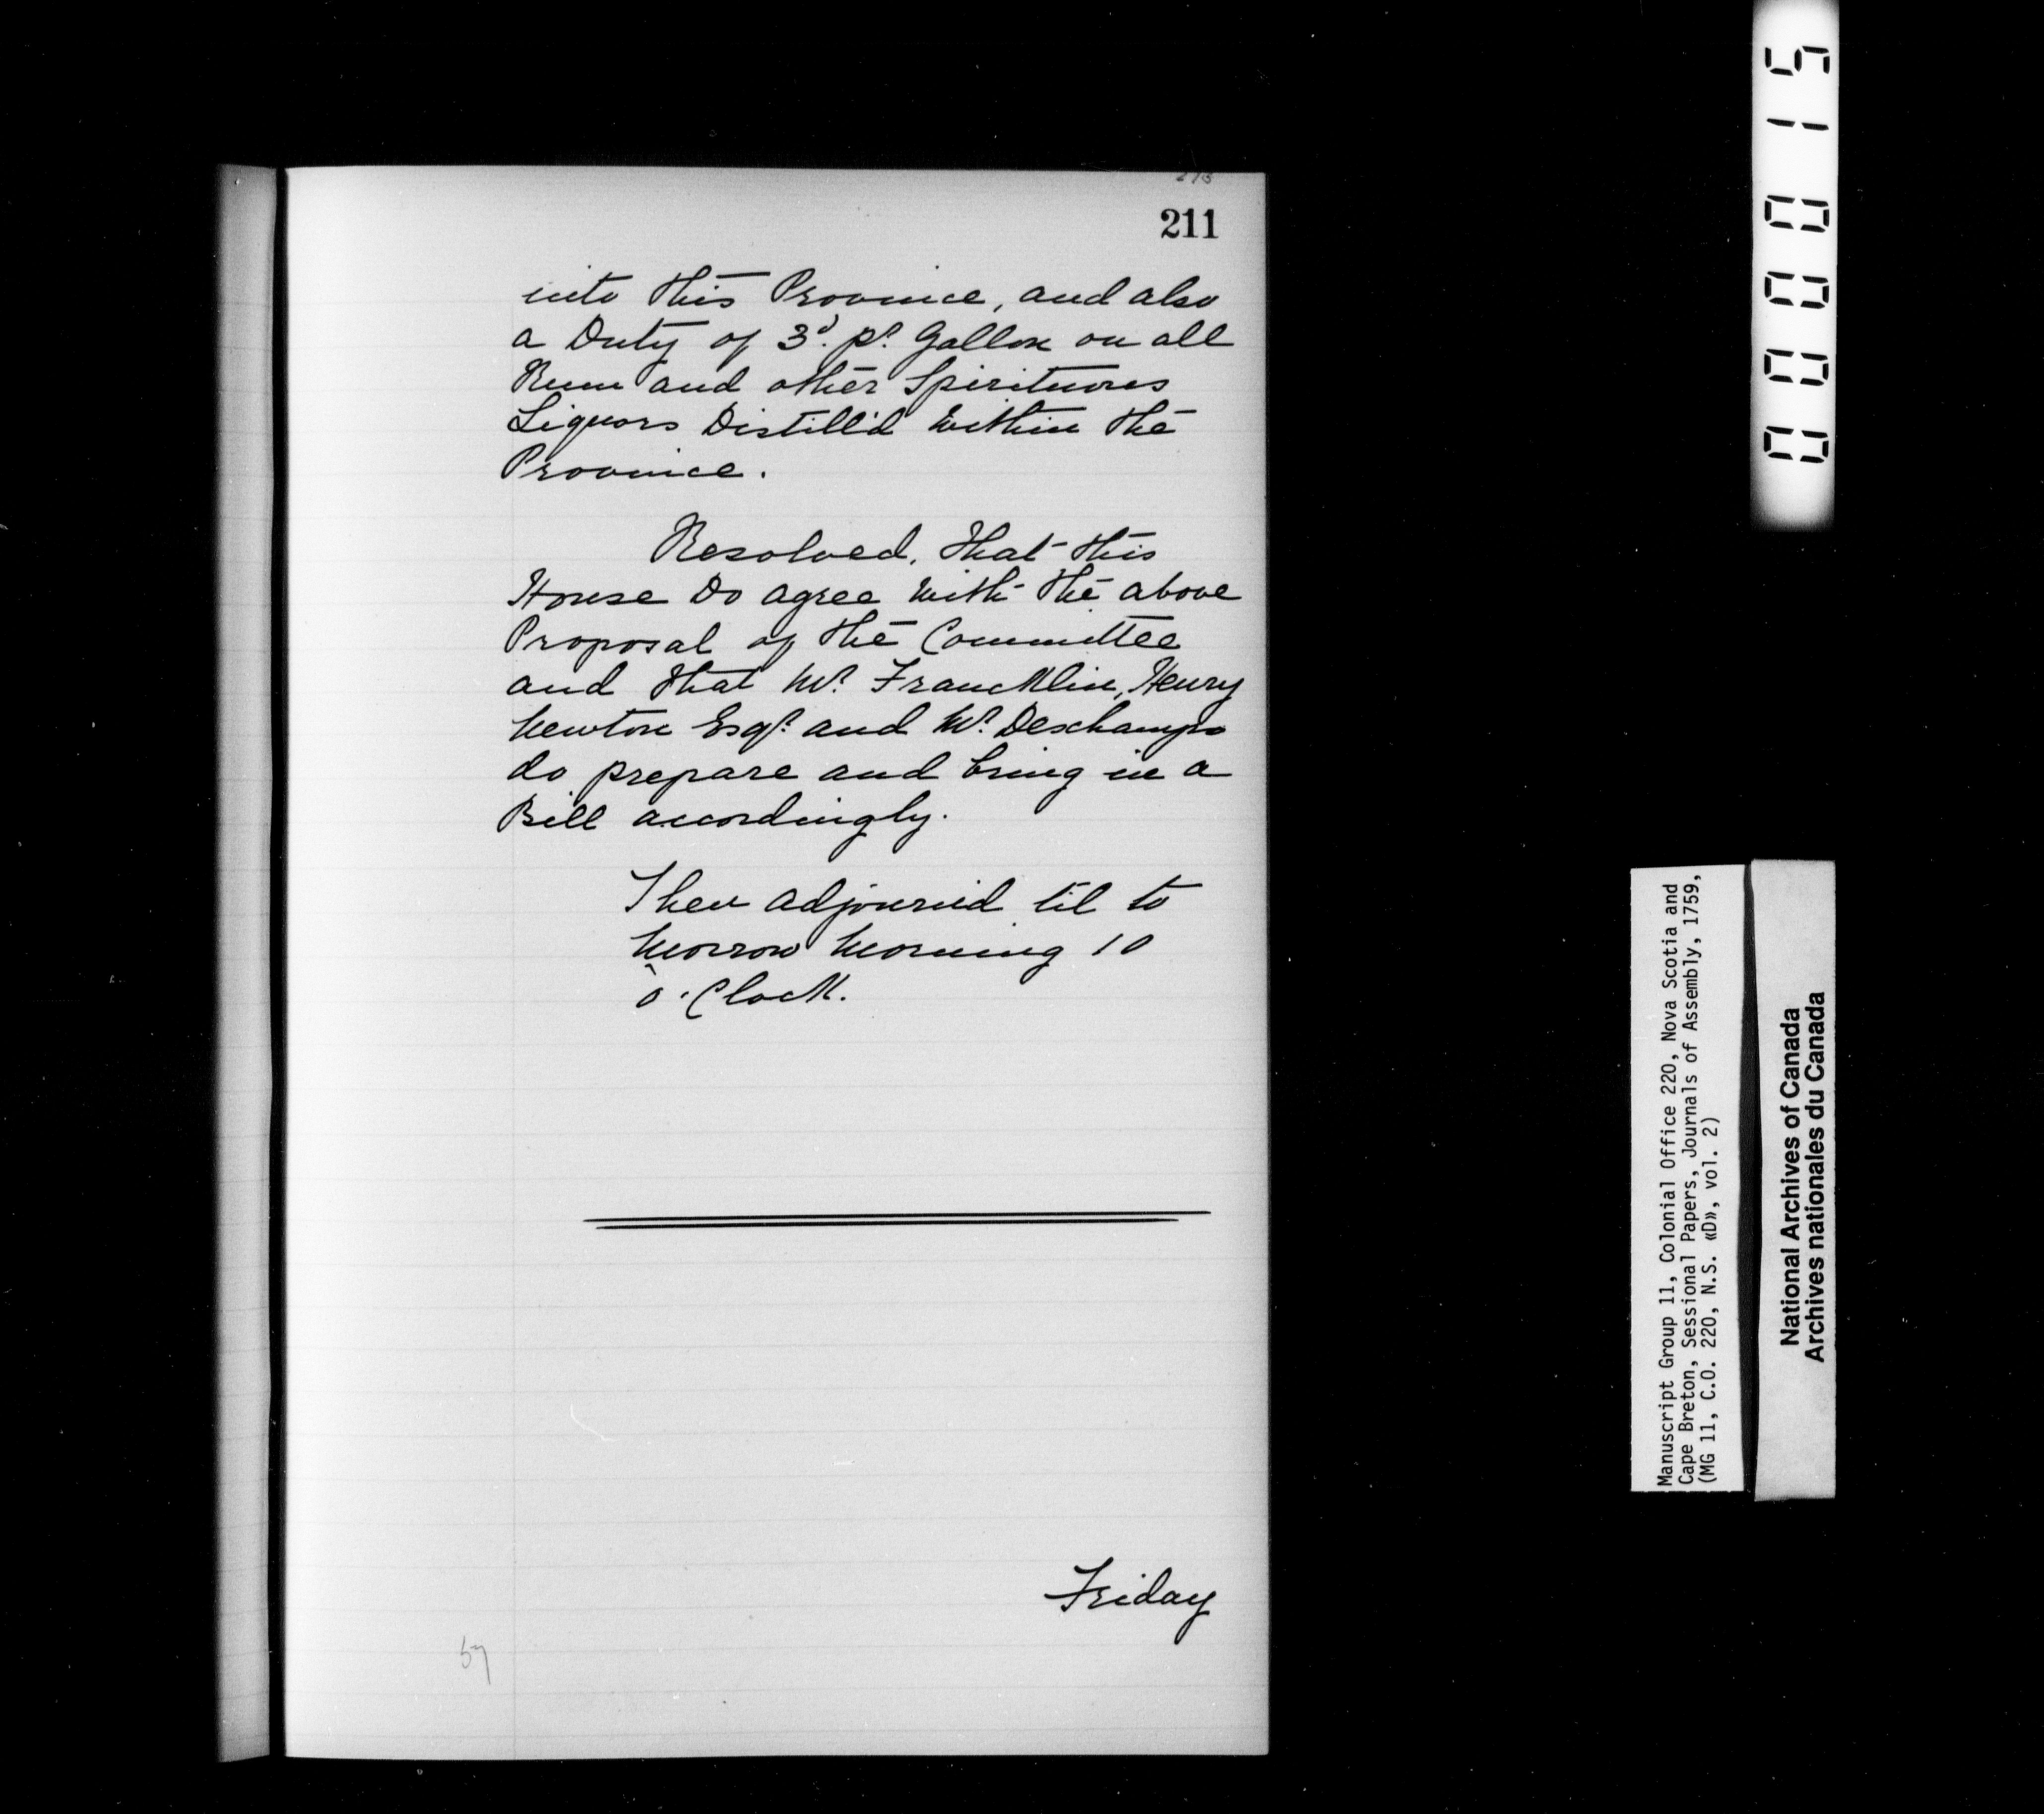 211
into this Province, and also
a Duty of 3d. pr. Gallon on all
Rum and other Spirituous
Liquors Distill'd within the
Province.
Resolved, that this
House Do agree with the above
Proposal of the Committee
and that Mr. Francklin, Henry
Newton Esqr. and Mr. Deschamps
do prepare and bring in a
Bill accordingly.
Then adjournid til to
Morrow Morning 10
o'Clock.
Friday
57
000015
Manuscript Group 11, Colonial Office 220, Nova Scotia and
Cape Breton, Sessional Papers, Journals of Assembly, 1759,
(MG 11, C.O. 220, N.S. «D», vol. 2)
National Archives of Canada
Archives nationales du Canada